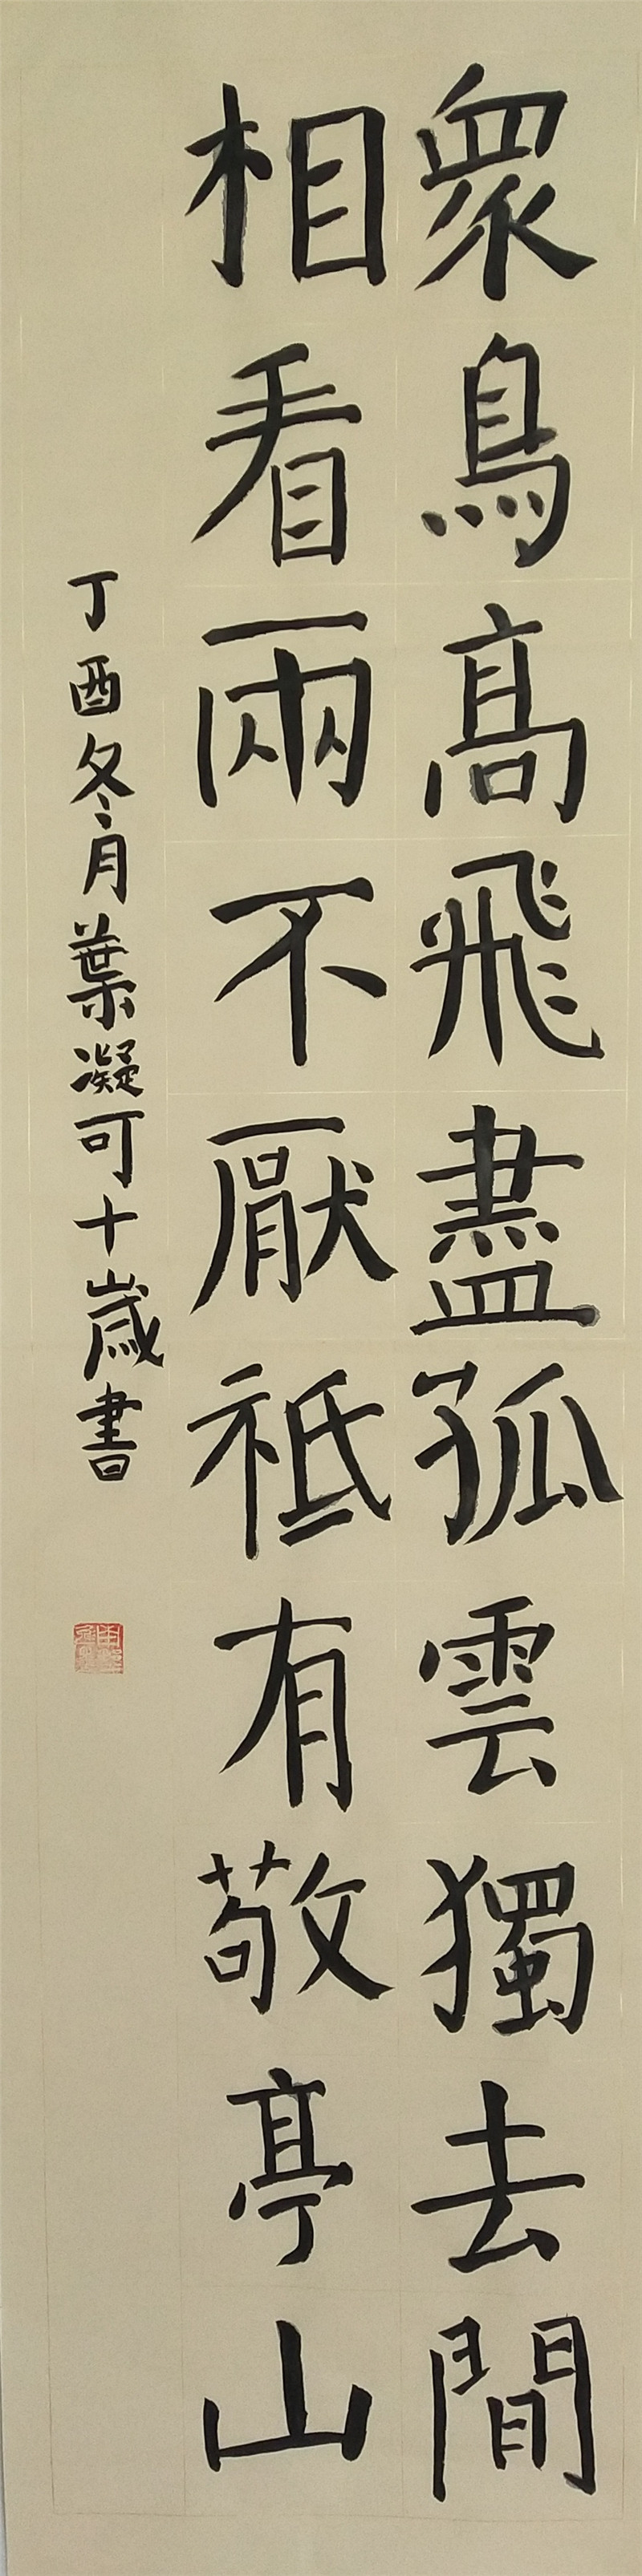 衆鳥高飛盡孤雲獨去間
相看兩不厭祗有敬亭山
丁酉冬月葉凝可十歲書